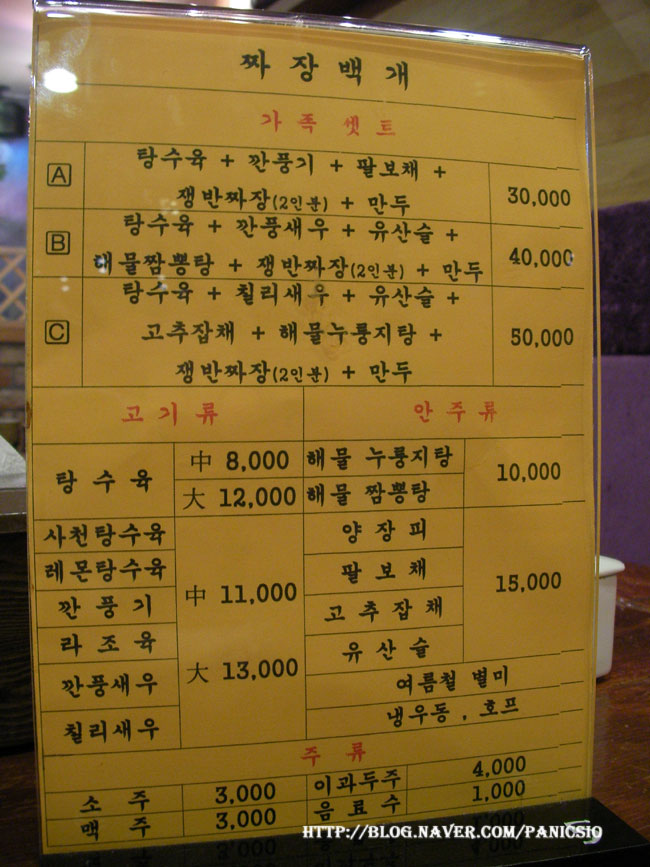 짜장백개
가족셋트
A 탕수육 + 깐풍기 + 팔보채 +
쟁반짜장(2인분) + 만두 30,000
B 탕수육 + 깐풍새우 + 유산슬 +
해물짬뽕탕 + 쟁반짜장(2인분) + 만두 40,000
C 탕수육 + 칠리새우 + 유산슬 +
고추잡채 + 해물누룽지탕 + 50,000
쟁반짜장(2인분) + 만두
고기류 안주류
탕수육 中 8,000 해물 누룽지탕 10,000
大 12,000 해물 짬뽕탕
사천탕수육 양장피
레몬탕수육 中 11,000 팔보채 15,000
깐풍기 고추잡채
라조육 大 13,000 유산슬
깐풍새우 여름철 별미
칠리새우 냉우동 , 호프
주류
소주 3,000 이과두주 4,000
맥주 3,000 음료수 1,000
HTTP://BLOG.NAVER.COM/PANICSIQ